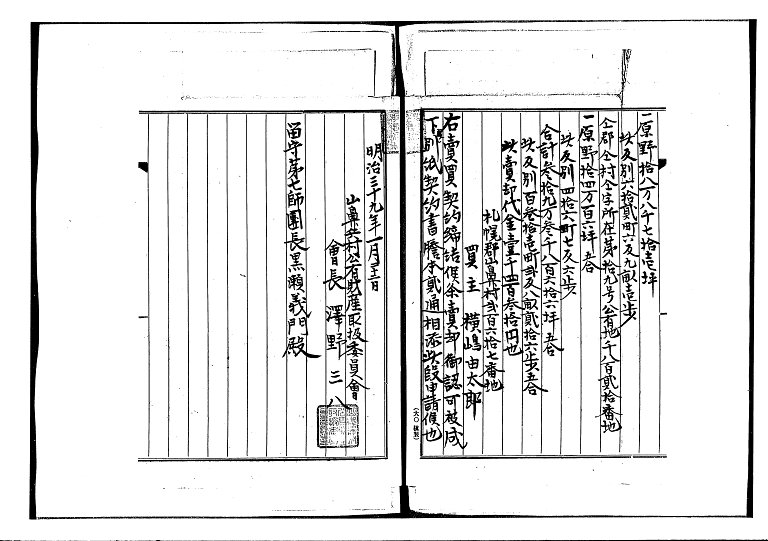 一原野拾八万八千七拾壱坪
此反別六拾貳町六反九畝壱歩
仝郡仝村仝字所在第拾九号公有地千八百貳拾番地
一原野拾四万百六坪五合
此反別四拾六町七反六歩
合計叁拾九万叁千八百六拾六坪五合
此反別百叁拾壱町貳反八畝貳拾六歩五合
此賣却代金壹千四百叁拾円也
札幌郡山鼻村貳百六拾七番地
買主 横嶋由太郎
右賣買契約締結候条賣却御認可被成
下度別紙契約書謄本貳通相添此段申請候也
明治三十九年一月三十日
山鼻兵村公有財産取扱委員會
會長 澤野三八
留守第七師團長黒瀬義門殿